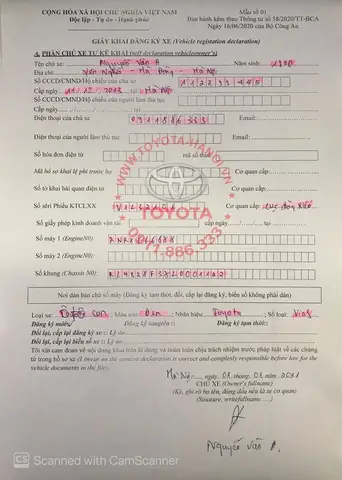 CỘNG HÒA XÃ HỘI CHỦ NGHĨA VIỆT NAM
Độc lập - Tự do - Hạnh phúc
Mẫu số 01
Ban hành kèm theo Thông tư số 58/2020/TT-BCA
Ngày 16/06/2020 của Bộ Công An
GIẤY KHAI ĐĂNG KÝ XE (Vehicle registration declaration)
A. PHẦN CHỦ XE TỰ KÊ KHAI (self declaration vehicle owner's)
Tên chủ xe: Nguyễn Văn A Năm sinh: 1990
Địa chỉ: Văn Nghệ - Hà Đông - Hà Nội
Số CCCD/CMND/Hộ chiếu của chủ xe 112233445
Cấp ngày 01/12/2013 tại Hà Nội
Số CCCD/CMND/Hộ chiếu của người làm thủ tục
Điện thoại của chủ xe 0911886333 Email:
Điện thoại của người làm thủ tục Email:
Số hóa đơn điện tử mã số thuế
Mã hồ sơ khai lệ phí trước bạ Cơ quan cấp:
Số tờ khai hải quan điện tử Cơ quan cấp:
Số sêri Phiếu KTCLXX Cơ quan cấp: Cục đăng kiểm
Số giấy phép kinh doanh vận tải cấp ngày / / tại
Số máy 1 (Engine N0):
Số máy 2 (Engine N0):
Số khung (Chassis N0):
WWW.TOYOTA-HANOI.VN
TOYOTA
0911.886.333
Nơi dán bản chà số máy (Đăng ký tạm thời, đổi, cấp lại đăng ký, biển số không phải dán)
Loại xe: con, Màu sơn: Đen; Nhãn hiệu: Toyota; Số loại: Vios
Đăng ký mới: Đăng ký sang tên □ Đăng ký tạm thời:
Đổi lại, cấp lại đăng ký xe □ Lý do
Đổi lại, cấp lại biển số xe □ Lý do
Tôi xin cam đoan về nội dung khai trên là đúng và hoàn toàn chịu trách nhiệm trước pháp luật về các chứng
từ trong hồ sơ xe (I swear on the content declaration is correct and completely responsible before law for the
vehicle documents in the file).
Hà Nội, ngày 01 tháng 01 năm 2021
CHỦ XE (Owner's fullname)
(Ký, ghi rõ họ tên, đóng dấu nếu là xe cơ quan)
(Sinature, writefullname.....)
Nguyễn Văn A.
CS Scanned with CamScanner